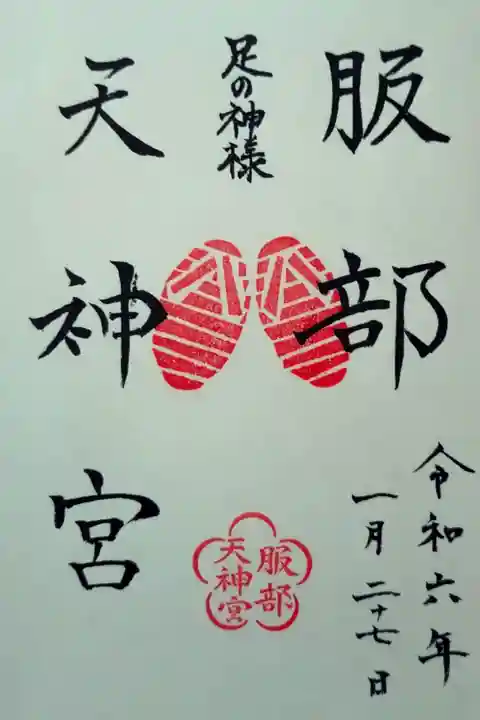 服部
足の神様
天神宮
服部
天神宮
令和六年
一月二十七日